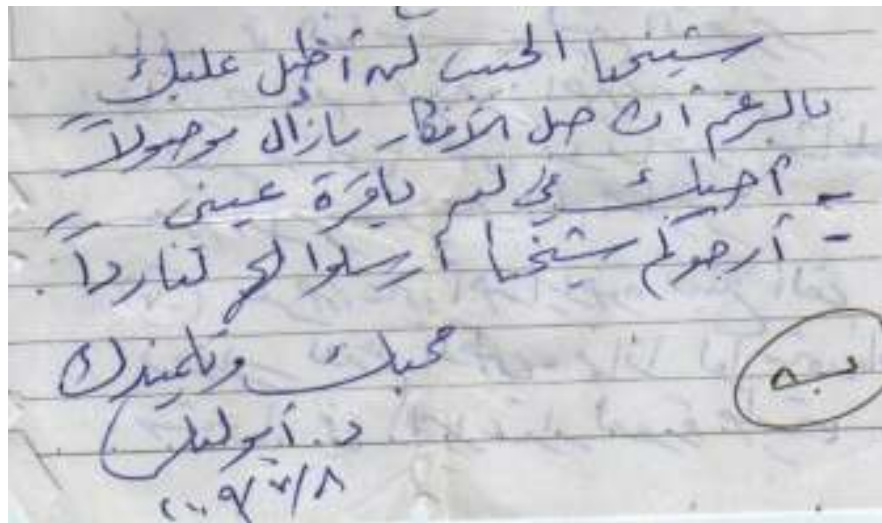 شيخنا الحبيب لن أطيل عليك
بالرغم أن حبل الأفكار مازال موصولاً
أحبك في الله ياقرة عيني
= أرجوكم شيخنا أرسلوا لنا رداً.
محبك وتلميذك
د. أبو